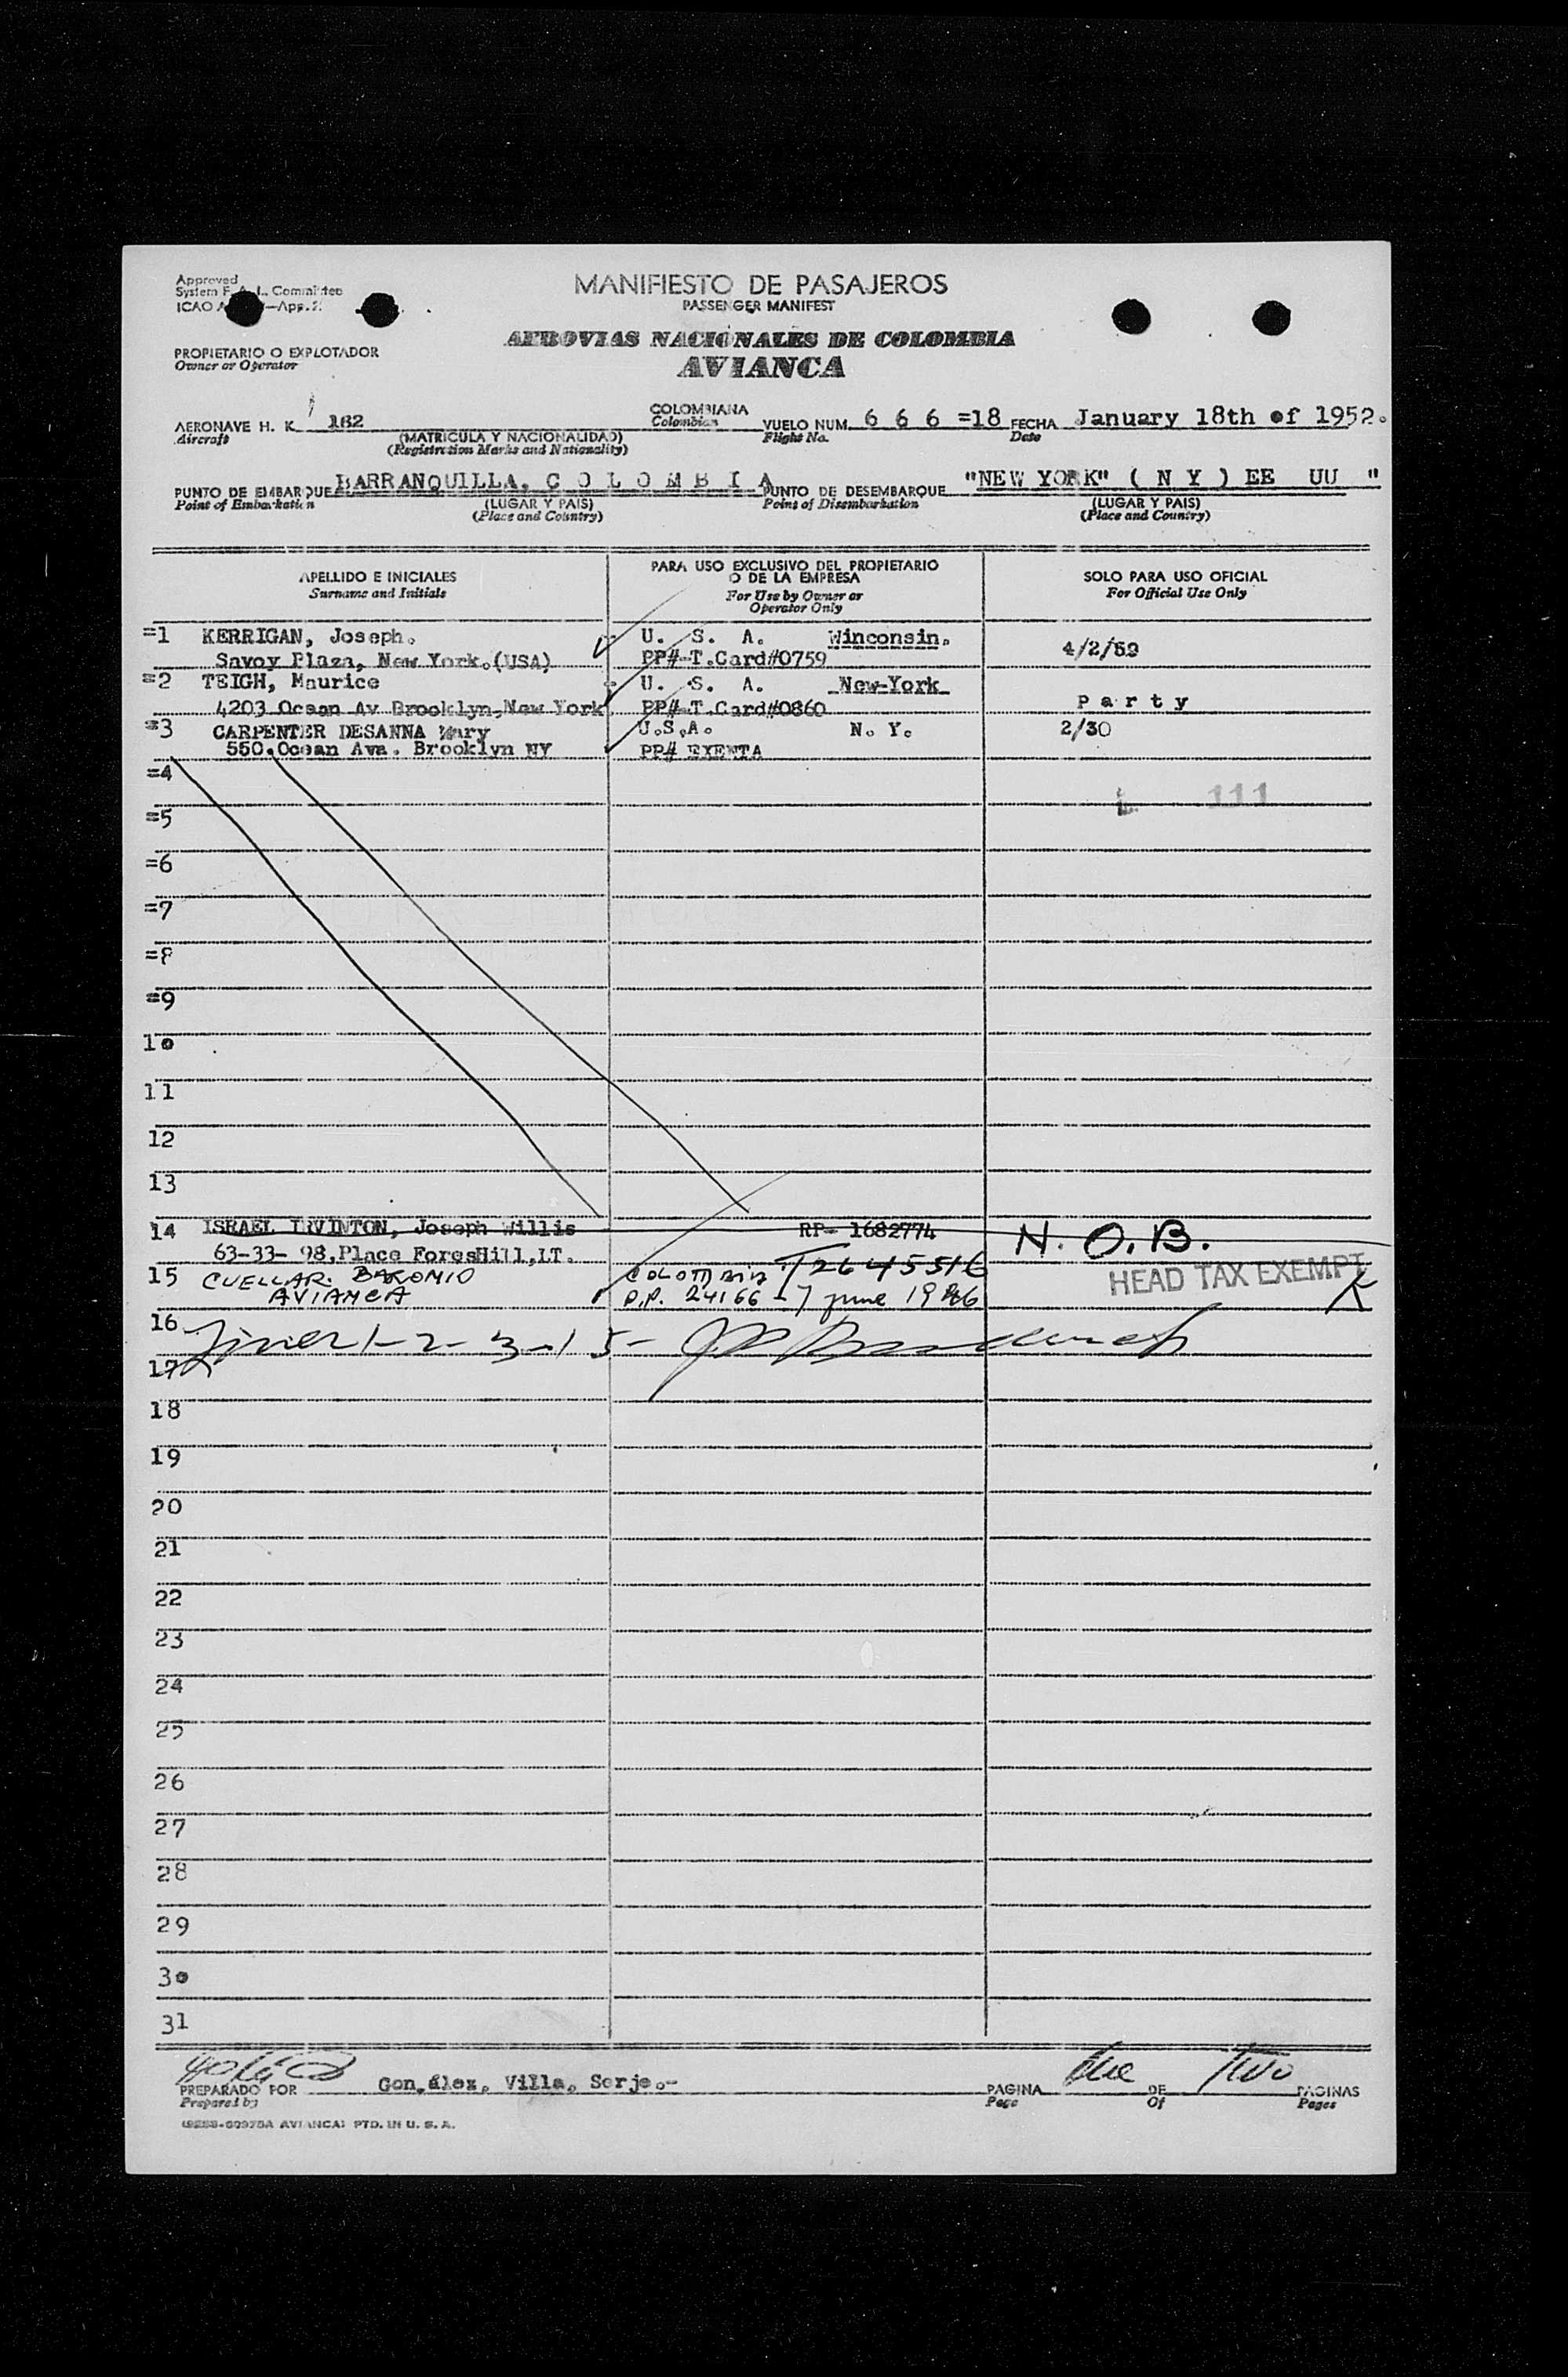 Approved
System F. A. L. Committee
ICAO A —App. 2
MANIFIESTO DE PASAJEROS
PASSENGER MANIFEST
AEROVIAS NACIONALES DE COLOMBIA
AVIANCA
PROPIETARIO O EXPLOTADOR
Owner or Operator
AERONAVE H. K. 162 COLOMBIANA VUELO NUM. 6 6 6 =18 FECHA January 18th of 1952.
Aircraft (MATRICULA Y NACIONALIDAD) Colombian Flight No. Date
(Registration Marks and Nationality)
PUNTO DE EMBARQUE BARRANQUILLA, C O L O M B I A PUNTO DE DESEMBARQUE "NEW YORK" ( N Y ) EE UU "
Point of Embarkation (LUGAR Y PAIS) Point of Disembarkation (LUGAR Y PAIS)
(Place and Country) (Place and Country)
APELLIDO E INICIALES PARA USO EXCLUSIVO DEL PROPIETARIO O DE LA EMPRESA SOLO PARA USO OFICIAL
Surname and Initials For Use by Owner or Operator Only For Official Use Only
=1 KERRIGAN, Joseph. U. S. A. Winconsin.
Savoy Plaza, New York.(USA) PP#-T.Card#0759 4/2/59
=2 TEIGH, Maurice U. S. A. New-York
4203 Ocean Av Brooklyn,New York PP#-T.Card#0860 P a r t y
=3 CARPENTER DESANNA Mary U.S.A. N. Y. 2/30
550.Ocean Ave. Brooklyn NY PP# EXENTA
=4
111
=5
=6
=7
=8
=9
10
11
12
13
14 ISRAEL IRVINTON, Joseph Willis RP- 1682774 N. O. B.
63-33- 98.Place ForesHill,LT. T2645516
HEAD TAX EXEMPT
15 CUELLAR. BARONIO COLOMBIA
AVIANCA P.P. 24166 - 7 june 1946 K
16 Lines 1-2-3-15-
17
18
19
20
21
22
23
24
25
26
27
28
29
30
31
PREPARADO POR Gonzalez, Villa, Serje.- PAGINA One DE Two PAGINAS
Prepared by Page Of Pages
AVIANCA: PTD. IN U. S. A.